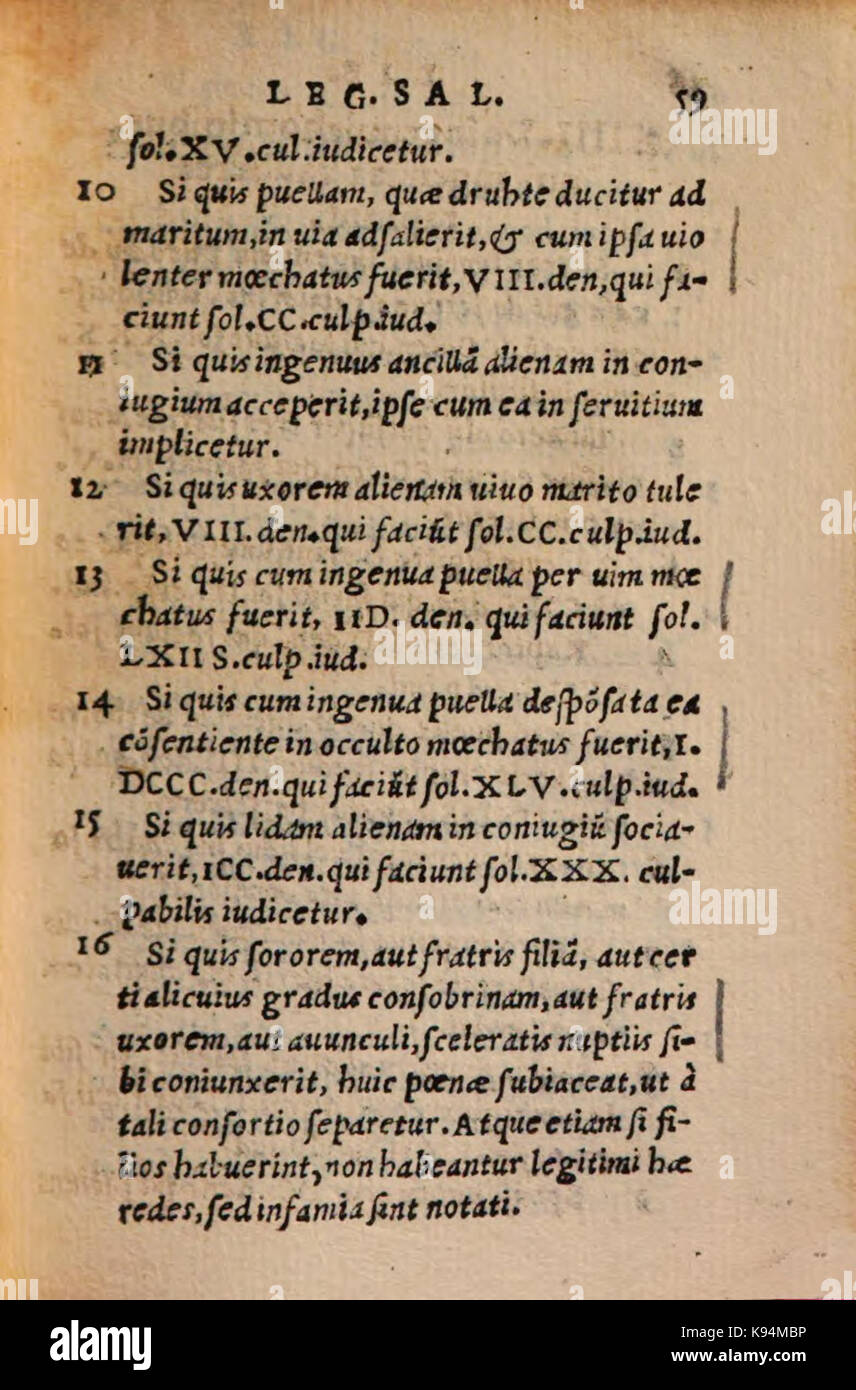 LEG. SAL. 59
ſol.XV.cul.iudicetur.
10 Si quis puellam, quæ druhte ducitur ad
maritum,in uia adſalierit,& cum ipſa uio
lenter mœchatus fuerit,VIII.den,qui fa-
ciunt ſol.CC.culp.iud.
11 Si quis ingenuus ancillã alienam in con-
iugium acceperit,ipſe cum ea in ſeruitium
implicetur.
12 Si quis uxorem alienam uiuo marito tule
rit,VIII.den.qui faciũt ſol.CC.culp.iud.
13 Si quis cum ingenua puella per uim mœ
chatus fuerit, IID. den. qui faciunt ſol.
LXII S.culp.iud.
14 Si quis cum ingenua puella deſpõſata ea
cõſentiente in occulto mœchatus fuerit,I.
DCCC.den.qui faciũt ſol.XLV.culp.iud.
15 Si quis lidam alienam in coniugiũ ſocia-
uerit,ICC.den.qui faciunt ſol.XXX. cul-
pabilis iudicetur.
16 Si quis ſororem,aut fratris filiã, aut cer
ti alicuius gradus conſobrinam,aut fratris
uxorem,aut auunculi,ſceleratis nuptiis ſi-
bi coniunxerit, huic pœnæ ſubiaceat,ut à
tali conſortio ſeparetur.Atque etiam ſi fi-
lios habuerint,non habeantur legitimi hæ
redes,ſed infamia ſint notati.
alamy stock photo
K94MBP
www.alamy.com